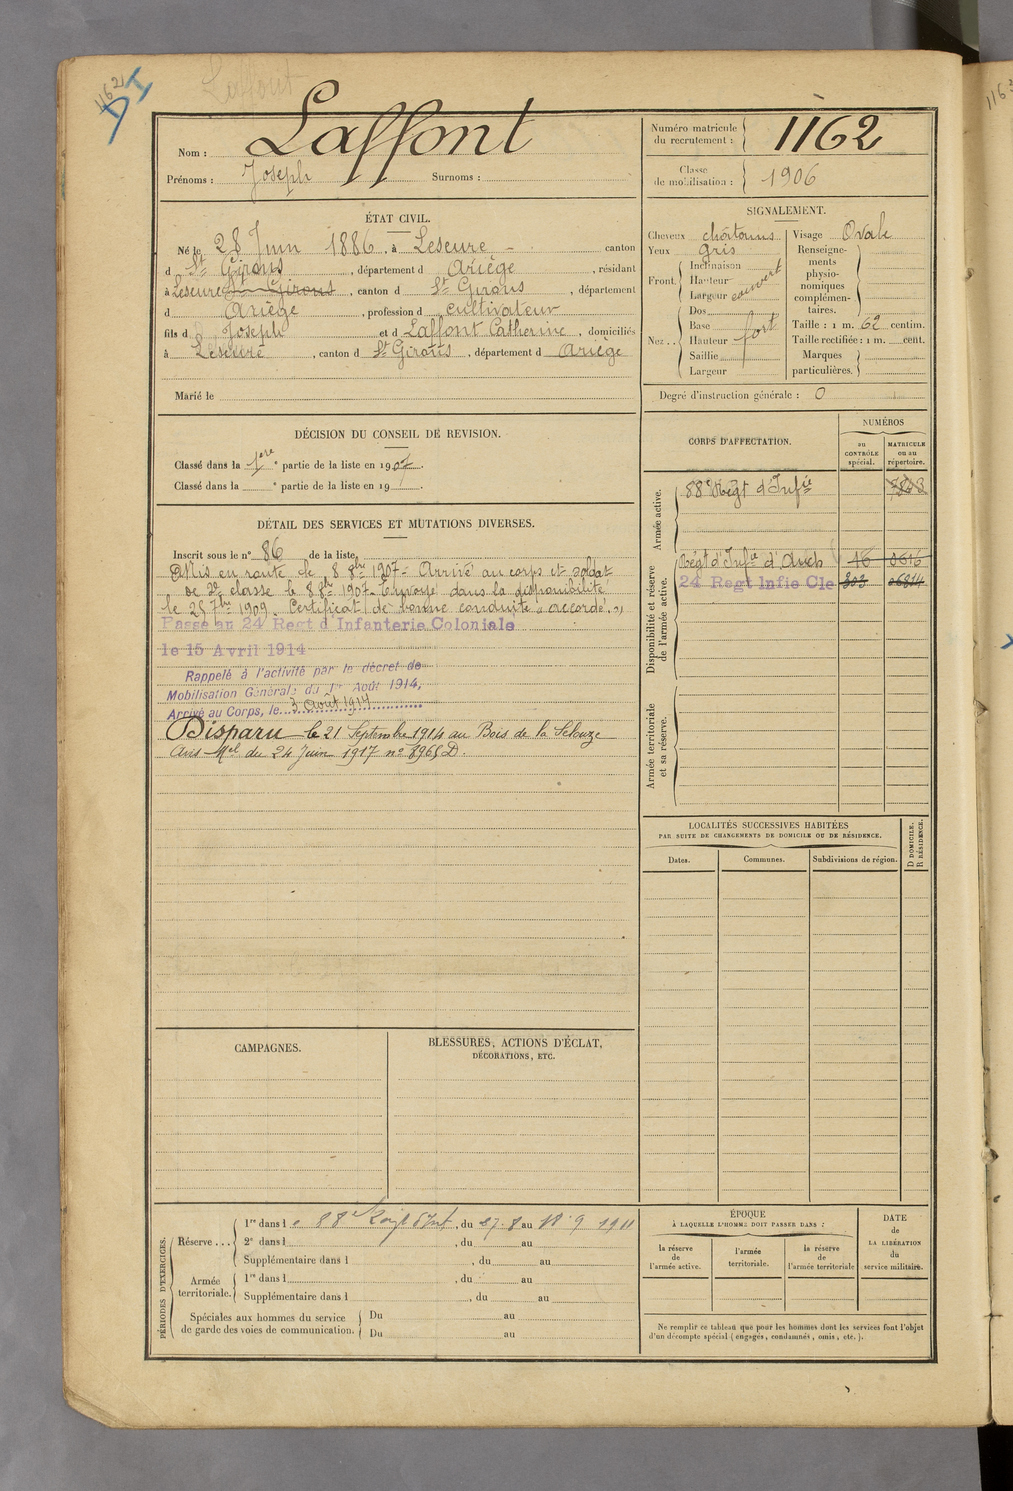 1162
Laffont
Nom : Laffont
Prénoms : Joseph Surnoms :
Numéro matricule du recrutement : 1162
Classe de mobilisation : 1906
ÉTAT CIVIL.
Né le 28 Juin 1886 . à Lescure - canton
d St Girons , département d Ariège , résidant
à Lescure St Girons , canton d St Girons , département
d Ariège , profession d cultivateur
fils d Joseph et d Laffont Catherine , domiciliés
à Lescure , canton d St Girons , département d Ariège
Marié le
SIGNALEMENT.
Cheveux châtains Visage Ovale
Yeux gris
Front. Inclinaison
Hauteur
Largeur couvert
Nez .. Dos
Base
Hauteur fort
Saillie
Largeur
Renseignements physionomiques complémentaires.
Taille : 1 m. 62 centim.
Taille rectifiée : 1 m. cent.
Marques particulières.
Degré d'instruction générale : 0
DÉCISION DU CONSEIL DE REVISION.
Classé dans la 1ere partie de la liste en 1907.
Classé dans la e partie de la liste en 19 .
DÉTAIL DES SERVICES ET MUTATIONS DIVERSES.
Inscrit sous le n° 86 de la liste
Mis en route le 8 8bre 1907 - Arrivé au corps et soldat
de 2e classe le 8 8bre 1907 - Envoyé dans la disponibilité
le 25 7bre 1909. Certificat de bonne conduite « accordé. »
Passé au 24 Regt d'Infanterie Coloniale
le 15 Avril 1914
Rappelé à l'activité par le décret de
Mobilisation Générale du 1er Août 1914,
Arrivé au Corps, le 3 Août 1914
Disparu le 21 Septembre 1914 au Bois de la
Avis Mel du 24 Juin 1917 n° 8965 D.
CORPS D'AFFECTATION.
NUMÉROS
au CONTRÔLE spécial.
MATRICULE ou au répertoire.
Armée active.
88e Régt d'Infie 7843
Disponibilité et réserve de l'armée active.
Régt d'Infie d'Auch 16 0616
24 Regt Infie Cle 303 06814
Armée territoriale et sa réserve.
LOCALITÉS SUCCESSIVES HABITÉES
PAR SUITE DE CHANGEMENTS DE DOMICILE OU DE RÉSIDENCE.
Dates. Communes. Subdivisions de région. D DOMICILE. R RÉSIDENCE.
CAMPAGNES.
BLESSURES, ACTIONS D'ÉCLAT,
DÉCORATIONS, ETC.
PÉRIODES D'EXERCICES.
Réserve ... 1re dans l e 88e Régt d'Inf , du 27.8 au 18.9 1911
2e dans l , du au
Supplémentaire dans l , du au
Armée territoriale. 1re dans l , du au
Supplémentaire dans l , du au
Spéciales aux hommes du service de garde des voies de communication. Du au
Du au
ÉPOQUE
À LAQUELLE L'HOMME DOIT PASSER DANS :
la réserve de l'armée active.
l'armée territoriale.
la réserve de l'armée territoriale
DATE de LA LIBÉRATION du service militaire.
Ne remplir ce tableau que pour les hommes dont les services font l'objet
d'un décompte spécial (engagés, condamnés, omis, etc.).